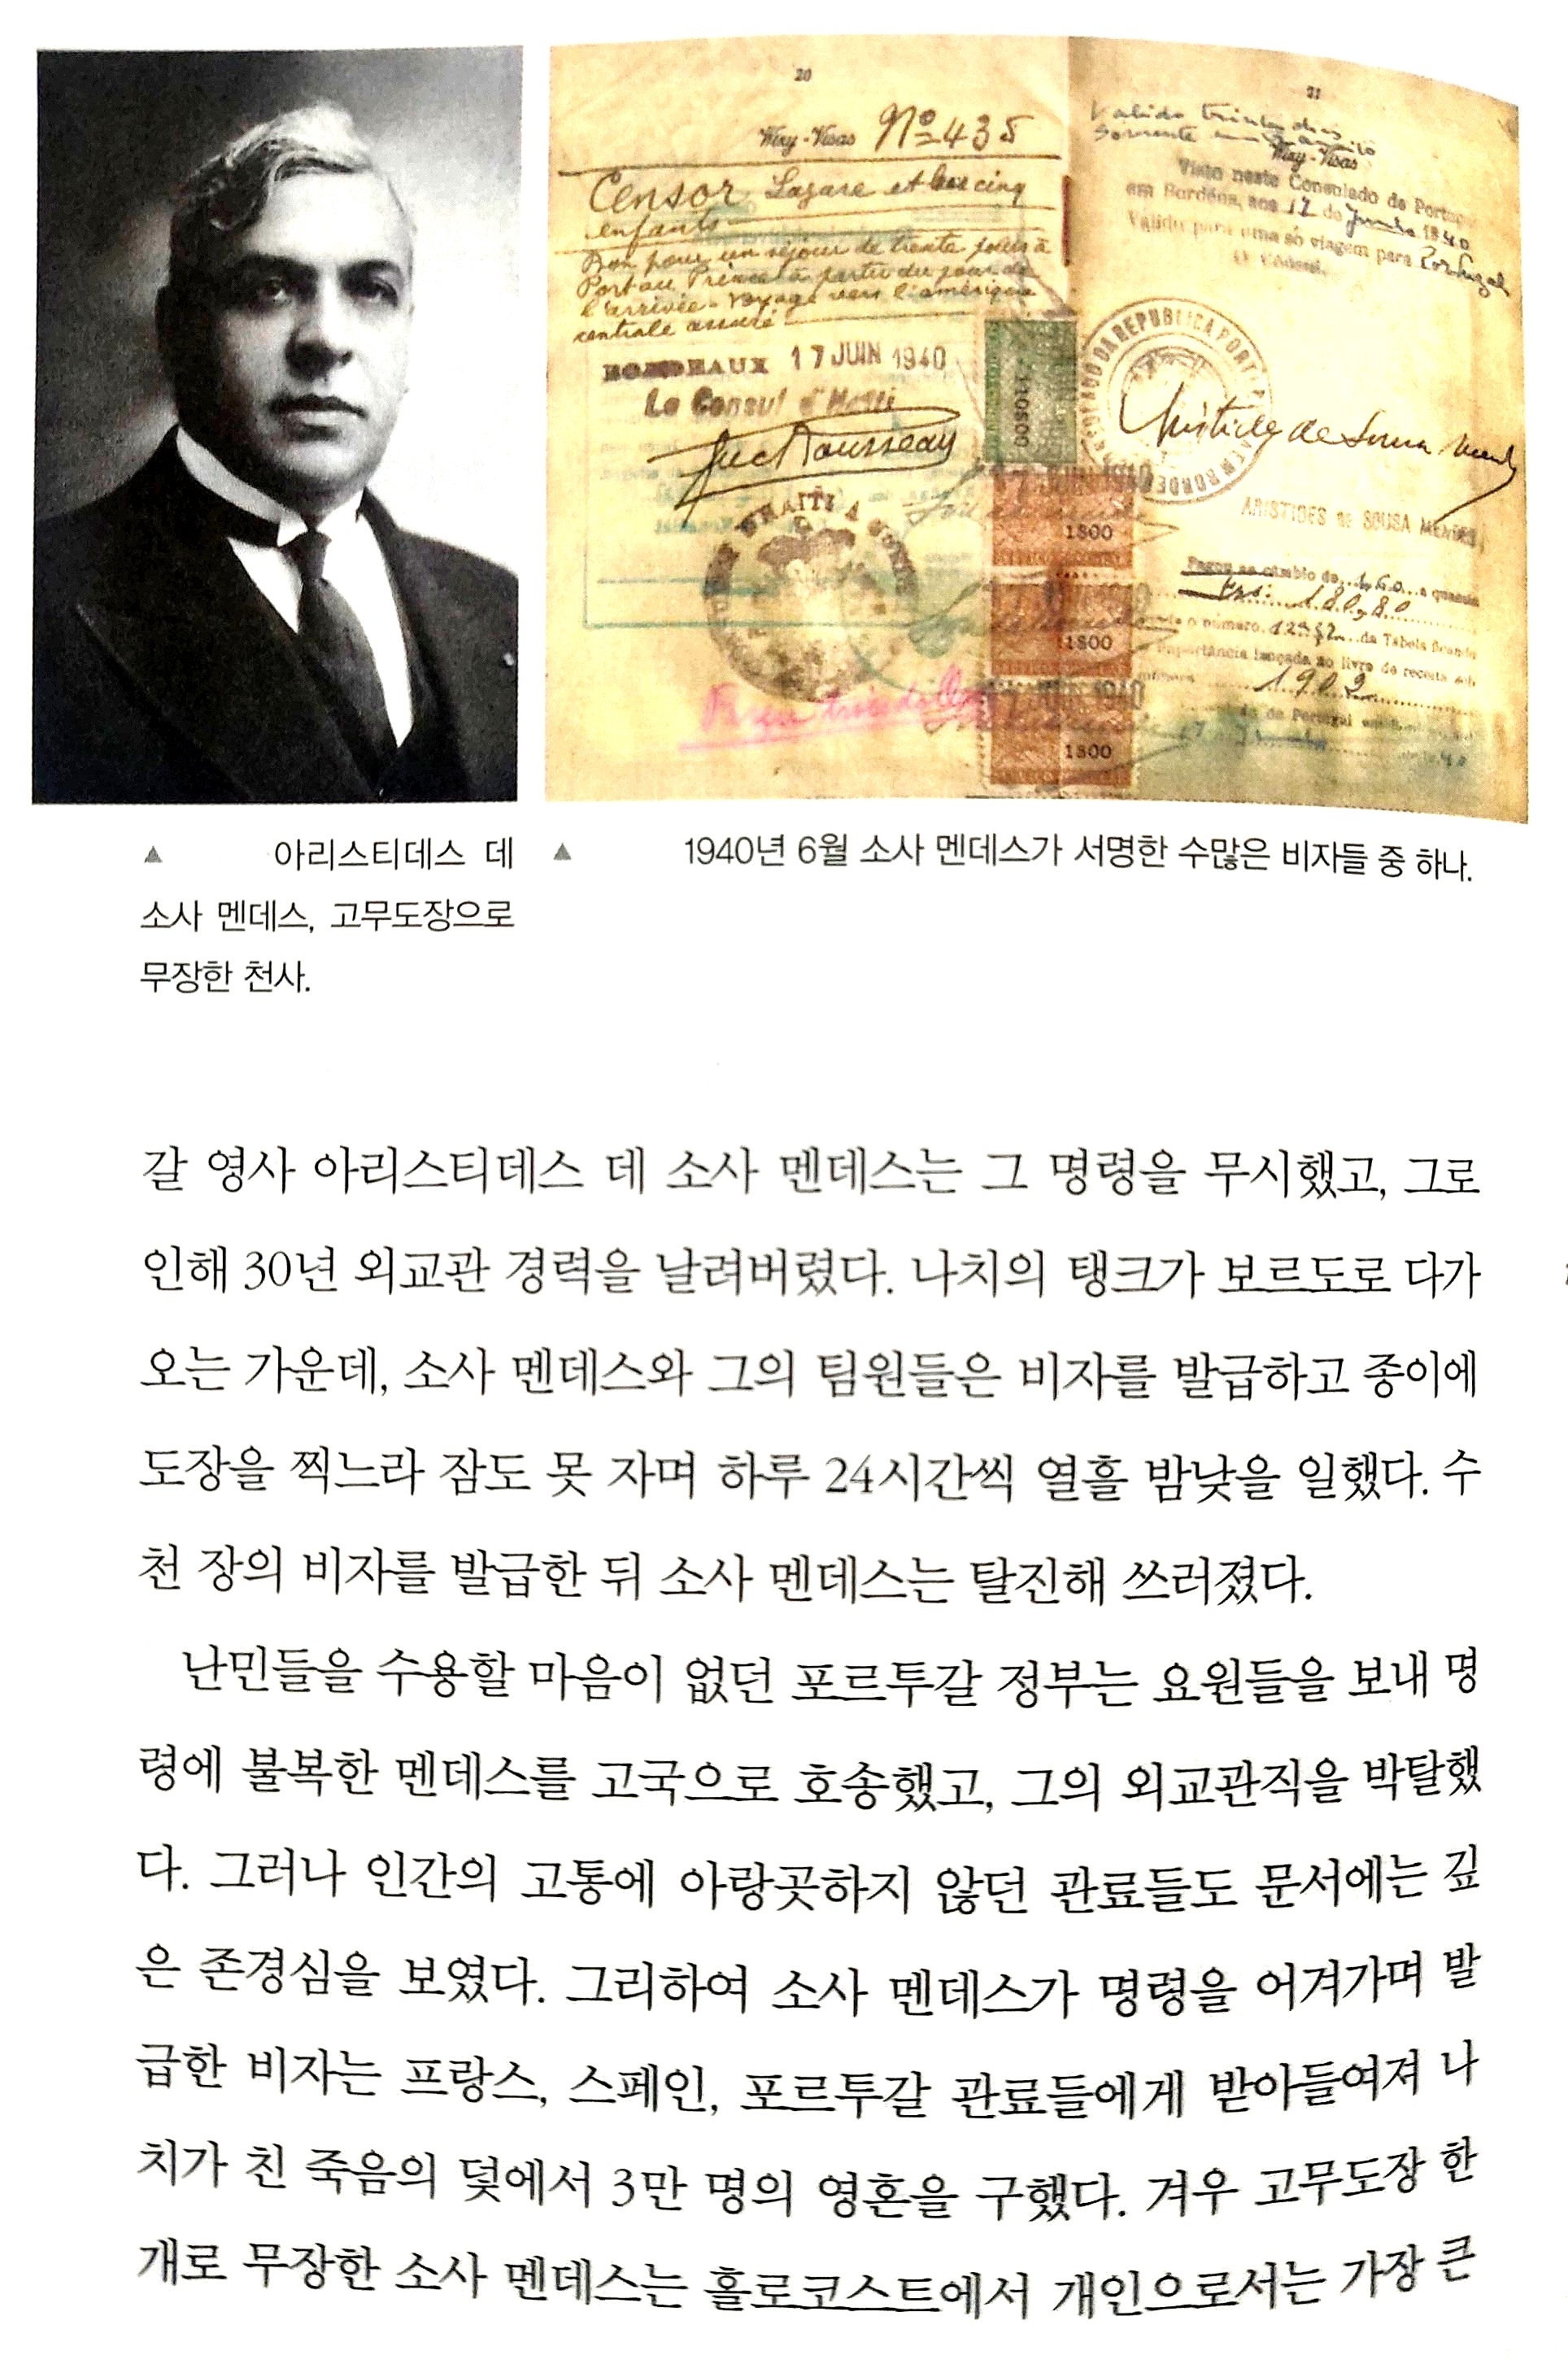 20
Way-Visas Nº 435
Censor Lazare et leur cinq
enfants
Bon pour un séjour de trente jours à
Port au Prince à partir du jour de
l'arrivée - voyage vers l'amérique
centrale assuré
BORDEAUX 17 JUIN 1940
Le Consul d'Haïti
21
Valido trinta dias
Somente
Way-Visas
Visto neste Consulado de Portugal
em Bordéus, aos 17 de Junho 1940
Válido para uma só viagem para Portugal
O Cônsul,
Aristides de Sousa Mendes
ARISTIDES DE SOUSA MENDES
Pagou ao câmbio de 1,60 a quantia
180,80
o número da Tabela
importância lançada no livro de receita
1902
de Portugal
40
1$00
1$00
1$00
▲ 아리스티데스 데
소사 멘데스, 고무도장으로
무장한 천사.
▲ 1940년 6월 소사 멘데스가 서명한 수많은 비자들 중 하나.
갈 영사 아리스티데스 데 소사 멘데스는 그 명령을 무시했고, 그로
인해 30년 외교관 경력을 날려버렸다. 나치의 탱크가 보르도로 다가
오는 가운데, 소사 멘데스와 그의 팀원들은 비자를 발급하고 종이에
도장을 찍느라 잠도 못 자며 하루 24시간씩 열흘 밤낮을 일했다. 수
천 장의 비자를 발급한 뒤 소사 멘데스는 탈진해 쓰러졌다.
난민들을 수용할 마음이 없던 포르투갈 정부는 요원들을 보내 명
령에 불복한 멘데스를 고국으로 호송했고, 그의 외교관직을 박탈했
다. 그러나 인간의 고통에 아랑곳하지 않던 관료들도 문서에는 깊
은 존경심을 보였다. 그리하여 소사 멘데스가 명령을 어겨가며 발
급한 비자는 프랑스, 스페인, 포르투갈 관료들에게 받아들여져 나
치가 친 죽음의 덫에서 3만 명의 영혼을 구했다. 겨우 고무도장 한
개로 무장한 소사 멘데스는 홀로코스트에서 개인으로서는 가장 큰